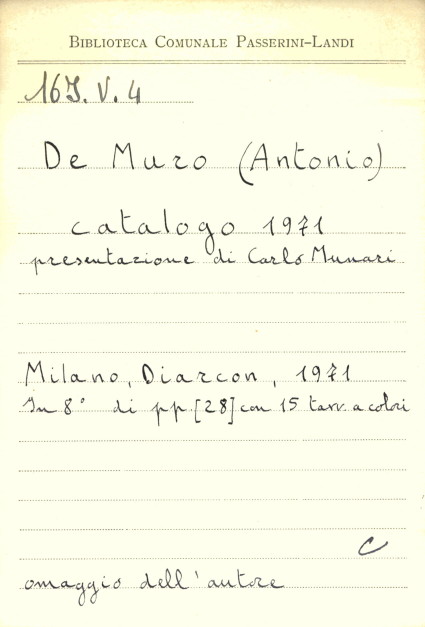 BIBLIOTECA COMUNALE PASSERINI-LANDI
16J. V. 4
De Muro (Antonio)
catalogo 1971
presentazione di Carlo Munari
Milano, Diarcon, 1971
In 8° di pp. [28] con 15 tavv. a colori
C
omaggio dell'autore